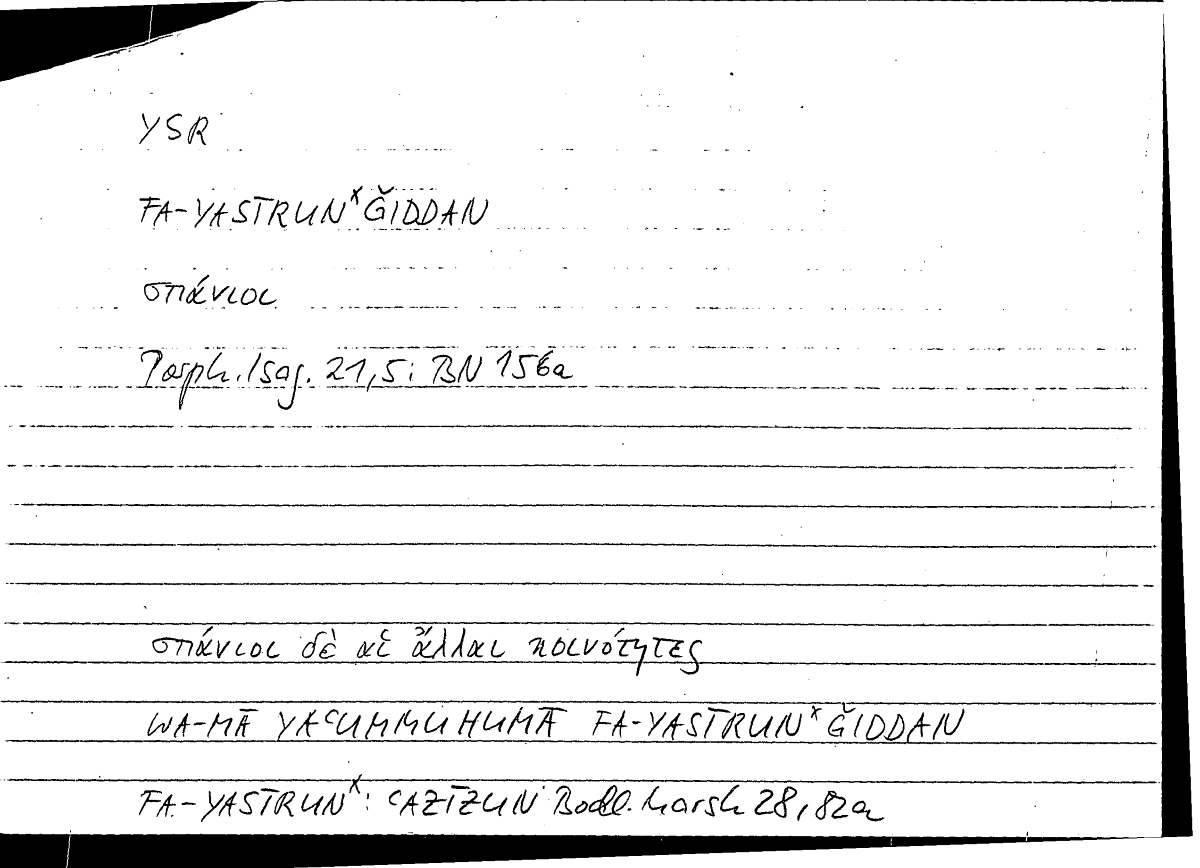 YSR
FA-YASĪRUNˣ ǦIDDAN
σπάνιοι
Porph. Isag. 21,5: BN 156a
σπάνιοι δὲ αἱ ἄλλαι κοινότητες
WA-MĀ YAʿUMMUHUMĀ FA-YASĪRUNˣ ǦIDDAN
FA-YASĪRUNˣ: ʿAZĪZUN Bodl. Marsh 28,82a